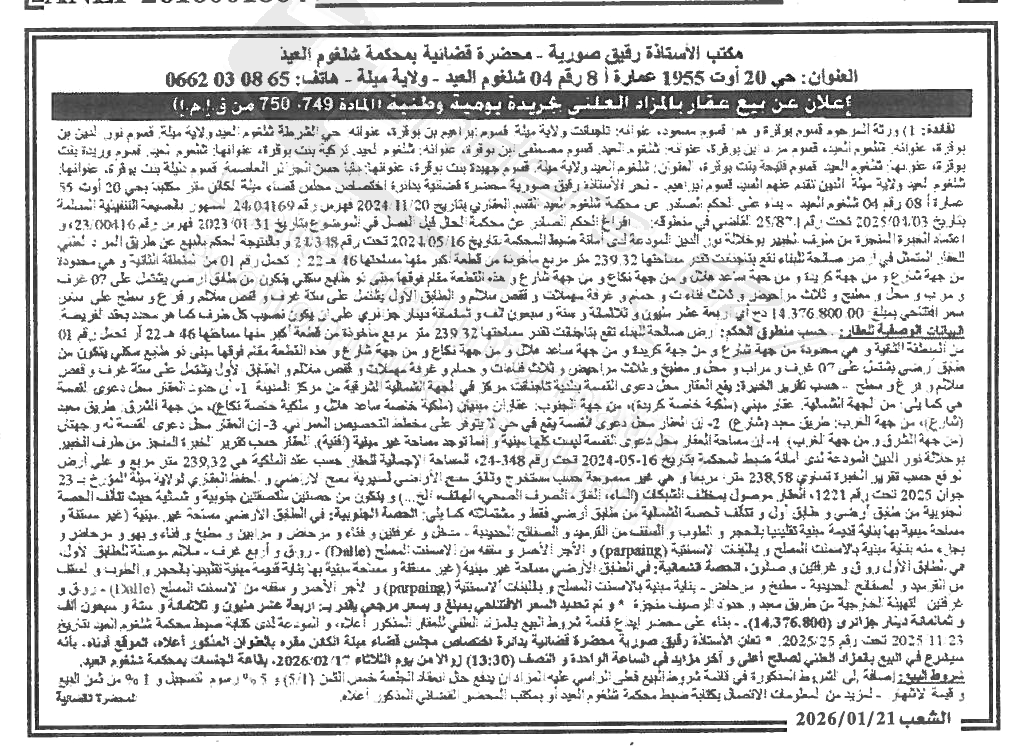 مكتب الأستاذة رقيق صورية - محضرة قضائية بمحكمة شلغوم العيد
العنوان: حي 20 أوت 1955 عمارة أ 8 رقم 04 شلغوم العيد - ولاية ميلة - هاتف: 65 08 03 0662
إعلان عن بيع عقار بالمزاد العلني بجريدة يومية وطنية (المادة 749، 750 من ق.إ.م.إ)
لفائدة: 1) ورثة المرحوم قسوم بوقرة و هم: قسوم مسعود، عنوانه: تاجنانت ولاية ميلة، قسوم إبراهيم بن بوقرة، عنوانه: حي الشرطة شلغوم العيد ولاية ميلة، قسوم نور الدين بن
بوقرة، عنوانه: شلغوم العيد، قسوم مراد بن بوقرة، عنوانه: شلغوم العيد، قسوم مصطفى بن بوقرة، عنوانه: شلغوم العيد، تركية بنت بوقرة، عنوانها: شلغوم العيد، قسوم وريدة بنت
بوقرة، عنوانها: شلغوم العيد، قسوم فتيحة بنت بوقرة، العنوان: شلغوم العيد ولاية ميلة، قسوم جهيدة بنت بوقرة، عنوانها: حسن الجزائر العاصمة، قسوم نبيلة بنت بوقرة، عنوانها:
شلغوم العيد ولاية ميلة الذين تقدم عنهم السيد قسوم ابراهيم. - نحن الأستاذة رقيق صورية محضرة قضائية بدائرة اختصاص مجلس قضاء ميلة الكائن مقر مكتبنا بحي 20 أوت 55
عمارة أ 08 رقم 04 شلغوم العيد - بناء على الحكم الصادر عن محكمة شلغوم العيد القسم العقاري بتاريخ 2024/11/20 فهرس رقم 24/04169 الممهور بالصيغة التنفيذية المسلمة
بتاريخ 2025/04/03 تحت رقم 25/871 القاضي في منطوقه: - افراغ الحكم الصادر عن محكمة الحال قبل الفصل في الموضوع بتاريخ 2023/01/31 فهرس رقم 23/00416، و
اعتماد الخبرة المنجزة من طرف الخبير بوخلالة نور الدين المودعة لدى أمانة ضبط المحكمة بتاريخ 2024/05/16 تحت رقم 24/348 و بالنتيجة الحكم بالبيع عن طريق المزاد العلني
للعقار المتمثل في أرض صالحة للبناء تقع بتاجنانت تقدر مساحتها 239.32 متر مربع مأخوذة من قطعة أكبر منها مساحتها 46 هـ 22 أر تحمل رقم 01 من المنطقة الثانية و هي محدودة
من جهة شارع و من جهة كريدة و من جهة ساعد هلال و من جهة نكاع و من جهة شارع و هذه القطعة مقام فوقها مبنى ذو طابع سكني يتكون من طابق أرضي يشتمل على 07 غرف
و مرآب و محل و مطبخ و ثلاث مراحيض و ثلاث فناءات و حمام و غرفة مهملات و قفص سلالم و الطابق الأول يشتمل على ستة غرف و قفص سلالم و فراغ و سطح على سعر
سعر افتتاحي بمبلغ 14.376.800.00 دج أي أربعة عشر مليون و ثلاثمائة و ستة و سبعون ألف و ثمانمائة دينار جزائري على أن يكون نصيب كل طرف كما هو محدد بعقد الفريضة.
البيانات الوصفية للعقار: حسب منطوق الحكم: أرض صالحة للبناء تقع بتاجنانت تقدر مساحتها 239.32 متر مربع مأخوذة من قطعة أكبر منها مساحتها 46 هـ 22 أر تحمل رقم 01
من المنطقة الثانية و هي محدودة من جهة شارع و من جهة كريدة و من جهة ساعد هلال و من جهة نكاع و من جهة شارع و هذه القطعة مقام فوقها مبنى ذو طابع سكني يتكون من
طابق أرضي يشتمل على 07 غرف و مرآب و محل و مطبخ و ثلاث مراحيض و ثلاث فناءات و حمام و غرفة مهملات و قفص سلالم و الطابق الأول يشتمل على ستة غرف و قفص
سلالم و فراغ و سطح - حسب تقرير الخبرة: يقع العقار محل دعوى القسمة بلدية تاجنانت مركز في الجهة الشمالية الشرقية من مركز المدينة 1- إن حدود العقار محل دعوى القسمة
هي كما يلي: من الجهة الشمالية: عقار مبني (ملكية خاصة كريدة)، من جهة الجنوب: عقاران مبنيان (ملكية خاصة ساعد هلال و ملكية خاصة نكاع)، من جهة الشرق: طريق معبد
(شارع)، من جهة الغرب: طريق معبد (شارع) 2- إن العقار محل دعوى القسمة يقع في حي لا يتوفر على مخطط التخصيص العمراني 3- إن العقار محل دعوى القسمة له وجهتين
(من جهة الشرق و من جهة الغرب) 4- إن مساحة العقار محل دعوى القسمة ليست كلها مبنية و إنما توجد مساحة غير مبنية (أفنية). العقار حسب تقرير الخبرة المنجز من طرف الخبير
بوخلالة نور الدين المودعة لدى أمانة ضبط المحكمة بتاريخ 16-05-2024 تحت رقم 348-24، المساحة الإجمالية للعقار حسب عقد الملكية هي 239,32 متر مربع و على أرض
الواقع حسب تقرير الخبرة تساوي 238,58 متر مربعا و هي غير ممسوحة حسب مستخرج وثائق مسح الأراضي لمديرية مسح الأراضي و الحفظ العقاري لولاية ميلة المؤرخ بـ 23
جوان 2025 تحت رقم 1221، العقار موصول بمختلف الشبكات (الماء، الغاز، الصرف الصحي، الهاتف، الخ...) و يتكون من حصتين متلاصقتين جنوبية و شمالية حيث تتألف الحصة
الجنوبية من طابق أرضي و طابق أول و تتألف الحصة الشمالية من طابق أرضي فقط و مشتملاته كما يلي: الحصة الجنوبية: في الطابق الأرضي مساحة غير مبنية (غير مسقفة و
مساحة مبنية بها بناية قديمة مبنية تقليديا بالحجر و الطوب و السقف من القرميد و الصفائح الحديدية - مدخل و غرفتين و فناء و مرحاض و مرآبين و مطبخ و فناء و بهو و مرحاض و
بجزء منه بناية مبنية بالاسمنت المسلح و باللبنات الاسمنتية (parpaing) و الآجر الأحمر و سقفه من الاسمنت المسلح (Dalle) - رواق و أربع غرف - سلالم موصلة للطابق الأول،
في الطابق الأول رواق و غرفتين و صالون، الحصة الشمالية: في الطابق الأرضي مساحة غير مبنية (غير مسقفة و مساحة مبنية بها بناية قديمة مبنية تقليديا بالحجر و الطوب و السقف
من القرميد و الصفائح الحديدية - مطبخ و مرحاض. - بناية مبنية بالاسمنت المسلح و باللبنات الاسمنتية (parpaing) و الآجر الأحمر و سقفه من الاسمنت المسلح (Dalle) - رواق و
غرفتين التهيئة الخارجية من طريق معبد و حدود الرصيف منجزة * و تم تحديد السعر الافتتاحي بمبلغ و بسعر مرجعي يقدر بـ: أربعة عشر مليون و ثلاثمائة و ستة و سبعون ألف
و ثمانمائة دينار جزائري (14.376.800). - بناء على محضر إيداع قائمة شروط البيع بالمزاد العلني للعقار المذكور أعلاه، و المودعة لدى كتابة ضبط محكمة شلغوم العيد بتاريخ
2025.11.23 تحت رقم 2025/25. * تعلن الأستاذة رقيق صورية محضرة قضائية بدائرة اختصاص مجلس قضاء ميلة الكائن مقره بالعنوان المذكور أعلاه، الموقع أدناه، بأنه
سيشرع في البيع بالمزاد العلني لصالح أعلى و آخر مزايد في الساعة الواحدة و النصف (13:30) زوالا من يوم الثلاثاء 2026/02/17، بقاعة الجلسات بمحكمة شلغوم العيد.
شروط البيع: إضافة إلى الشروط المذكورة في قائمة شروط البيع فعلى الراسي عليه المزاد أن يدفع حال انعقاد الجلسة خمس الثمن (5/1) و 5 % رسوم التسجيل و 1 % من ثمن البيع
و قيمة الإشهار - لمزيد من المعلومات الاتصال بكتابة ضبط محكمة شلغوم العيد أو بمكتب المحضر القضائي المذكور أعلاه. المحضرة القضائية
الشعب 2026/01/21